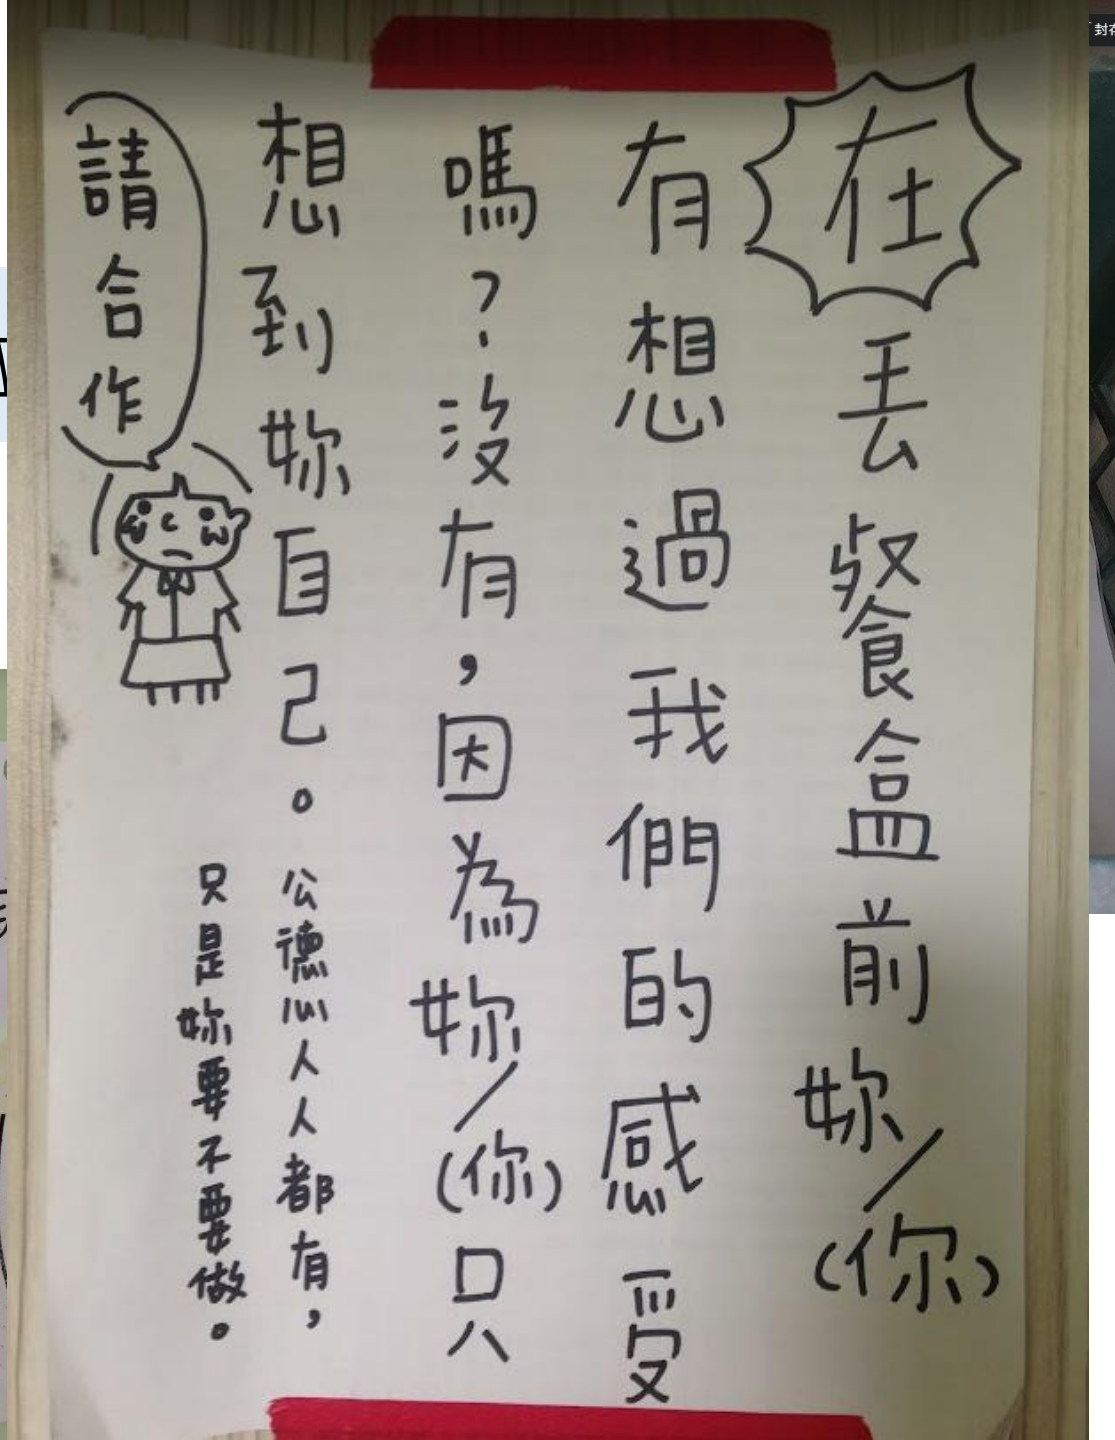 在丟餐盒前妳/(你)
有想過我們的感受
嗎？沒有，因為妳/(你)只
想到妳自己。公德心人人都有，
只是妳要不要做。
請合作
封存